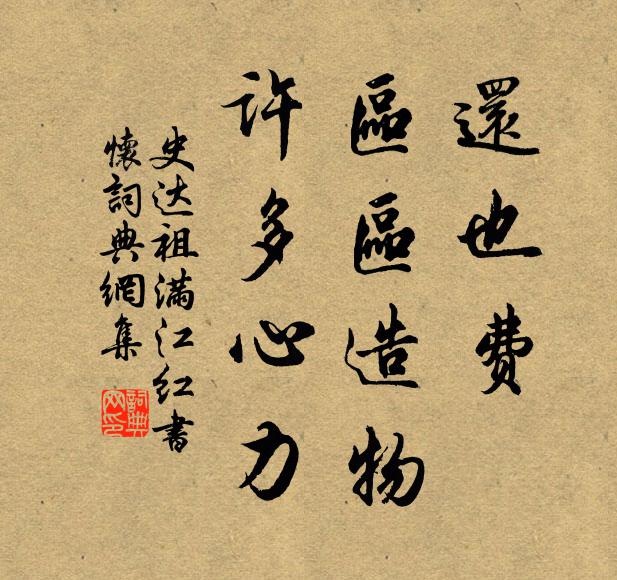 還也費
區區造物
許多心力
史达祖满江红書
懷詞典網集
詞典
网印